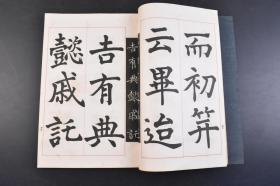 而初笄
云畢迨
吉有典懿戚託
吉有典
懿戚託